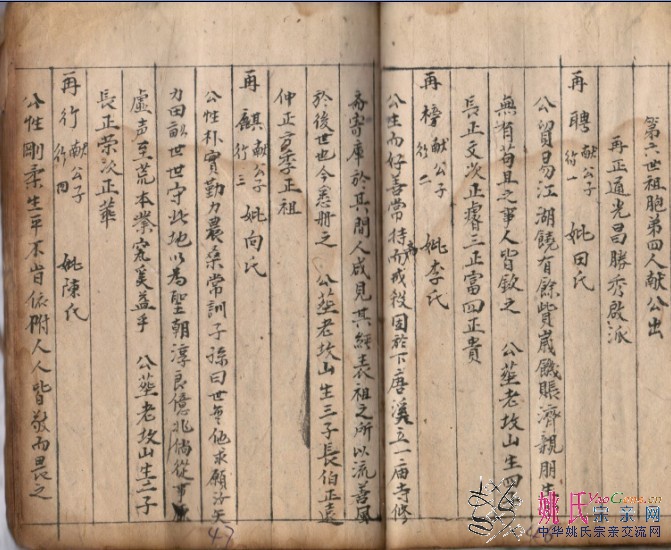 第六世祖胞弟四人献公出
再正通光昌勝秀啟派
再聘 献公子 行一 妣田氏
公貿易江湖饒有餘貲歲饑賑濟親朋生
無有苟且之事人皆欽之 公塟老坟山生四子
長正文次正 三正富四正貴
再榜 献公子 行二 妣李氏
公生而好善常持齋而戒殺因於下唐溪立一庙寺修
齋寄庫於其間人咸見其經表祖之所以流善風
於後世也今悉册之 公塟老坟山生三子長伯正遠
仲正 季正祖
再麒 献公子 行三 妣向氏
公性朴實勤力農桑常訓子孫曰世無他求願汝矢
力田畝世世守此地以為聖朝淳良億兆倘從事
虛声至荒本業寃奚益乎 公塟老坟山生二子
長正荣次正華
再行 献公子 行四 妣陳氏
公性剛柔生平不肯依附人人皆敬而畏之
47
YaoGens.cn
姚氏宗亲网
中华姚氏宗亲交流网